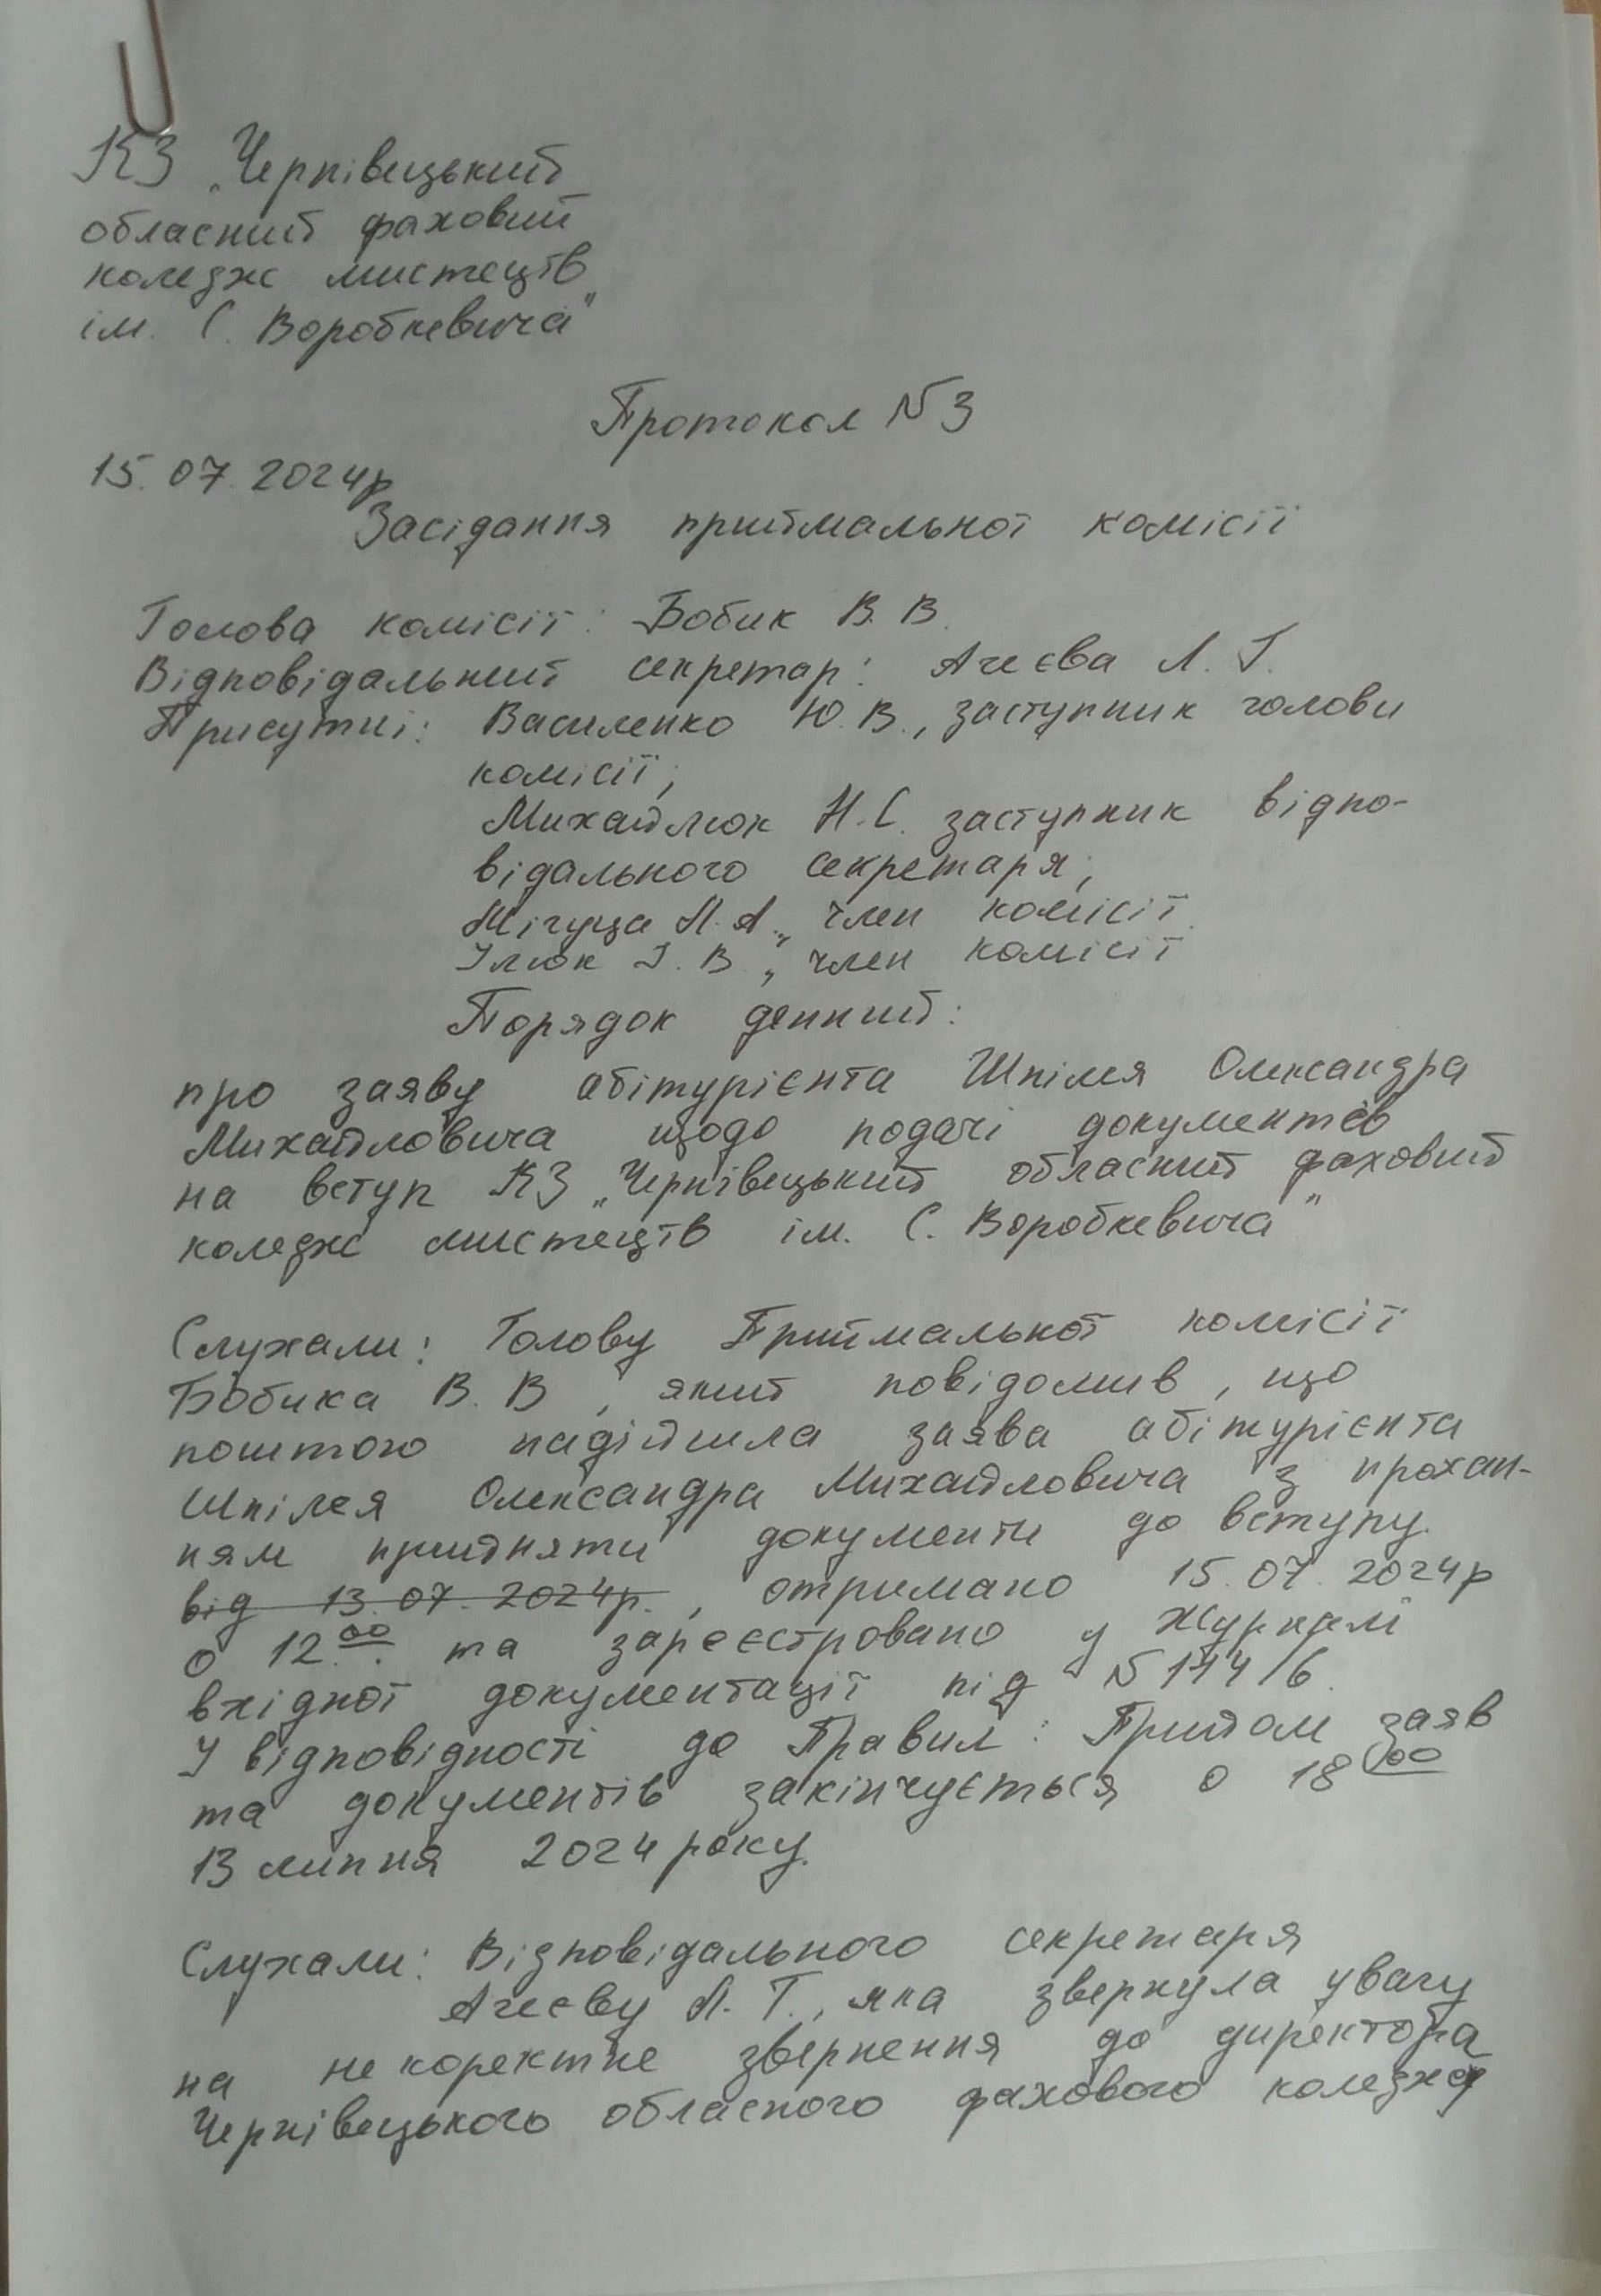 КЗ „Чернівецький
обласний фаховий
коледж мистецтв
ім. С. Воробкевича"
Протокол №3
15.07.2024р
Засідання приймальної комісії
Голова комісії: Бобик В.В.
Відповідальний секретар: Агєєва Л. Г.
Присутні: Василенко Ю.В., заступник голови
комісії;
Михайлюк Н.С. заступник відпо-
відального секретаря;
Жігуца Л.А., член комісії
Ілюк І.В., член комісії
Порядок денний:
про заяву абітурієнта Шпілея Олександра
Михайловича щодо подачі документів
на вступ КЗ „Чернівецький обласний фаховий
коледж мистецтв ім. С. Воробкевича"
Слухали: Голову Приймальної комісії
Бобика В. В, який повідомив, що
поштою надійшла заява абітурієнта
Шпілея Олександра Михайловича з прохан-
ням прийняти документи до вступу.
від 13.07.2024р., отримано 15.07.2024р
о 12.00 та зареєстровано у Журналі
вхідної документації під №144/6.
У відповідності до Правил: Прийом заяв
та документів закінчується о 18 00
13 липня 2024 року.
Слухали: Відповідального секретаря
Агєєву Л. Г., яка звернула увагу
на не коректне звернення до директора
Чернівецького обласного фахового коледжу